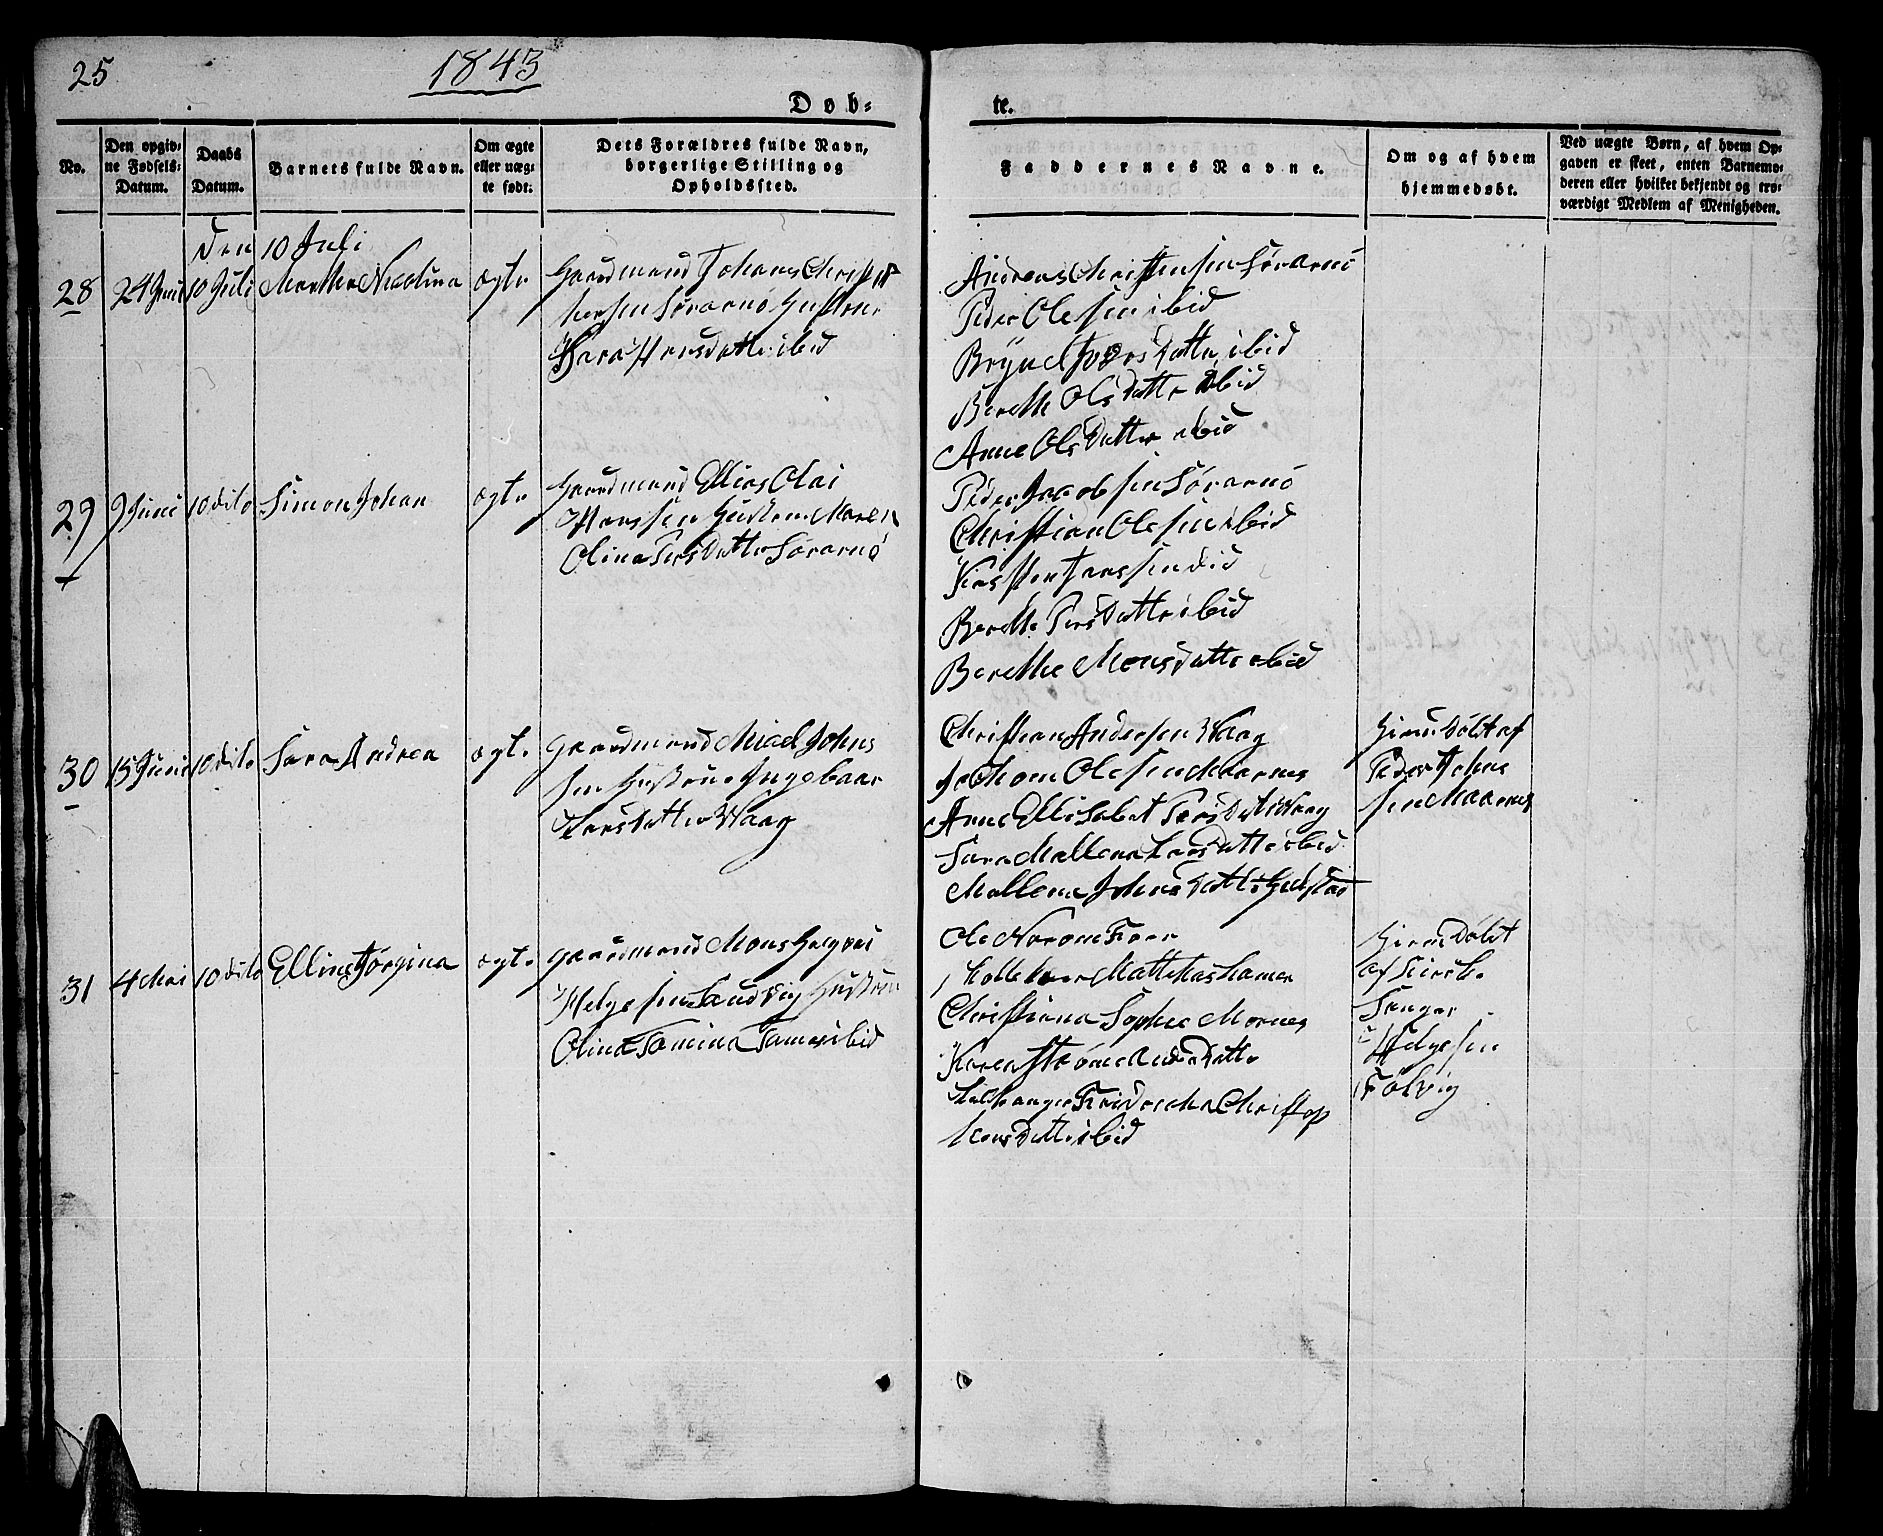 25
1843
Døb=
te.
No.
Den opgiv=
ne Fødsels=
Datum.
Daabs
Datum.
Barnets fulde Navn.
Om ægte
eller uæg=
te født.
Dets Forældres fulde Navn,
borgerlige Stilling og
Opholdsted.
Faddernes Navne.
Om og af hvem
hjemmedøbt.
Ved uægte Børn, af hvem Op=
gaven er skeet, enten Barnemo=
deren eller hvilket bekjendt og tro=
værdigt Medlem af Menigheden.
Den 10 Juli
28 24 Juni 10 Juli Martha Nicolina ægte Gaardmand Johans Christof
hersen Sørarnø Hustrue
Sara Hansdatter ibid
Andreas Christensen Sørarnø
Peder Olesen ibid
datter ibid
Berethe Olsdatter ibid
Anne Olsdatter ibid
29 9 Juni 10 dito Simon Johan ægte Gaardmand Ellias Olai
Hanssen Hustrue Maren
Olina Persdatter Sørarnø
Peder Jacobsen Sørarnø
Christian Olesen ibid
Berethe Persdatter ibid
Berethe Monsdatter ibid
30 15 Juni 10 dito Sara Andrea ægte Gaardmand Micel Johns
sen Hustrue Ingebaar
Larsdatter Waag
Christian Andersen Waag
Olesen Maarnes
Anne Ellisabet Persdatter Waag
Sara Mallena Larsdatter ibid
Mallena Johnsdatter
Hiemdøbt af
Peder Johns
sen Maarnes
31 4 Mai 10 dito Elling Jørgina ægte Gaardmand Mons
Helgesen Hustrue
Olina Tomina ibid
Ole
Mathias
Christiana Sophie Mornes
Karen datter
Christop
hersdatter ibid
Hiemdøbt
af Kirke
Sanger
Helgesen